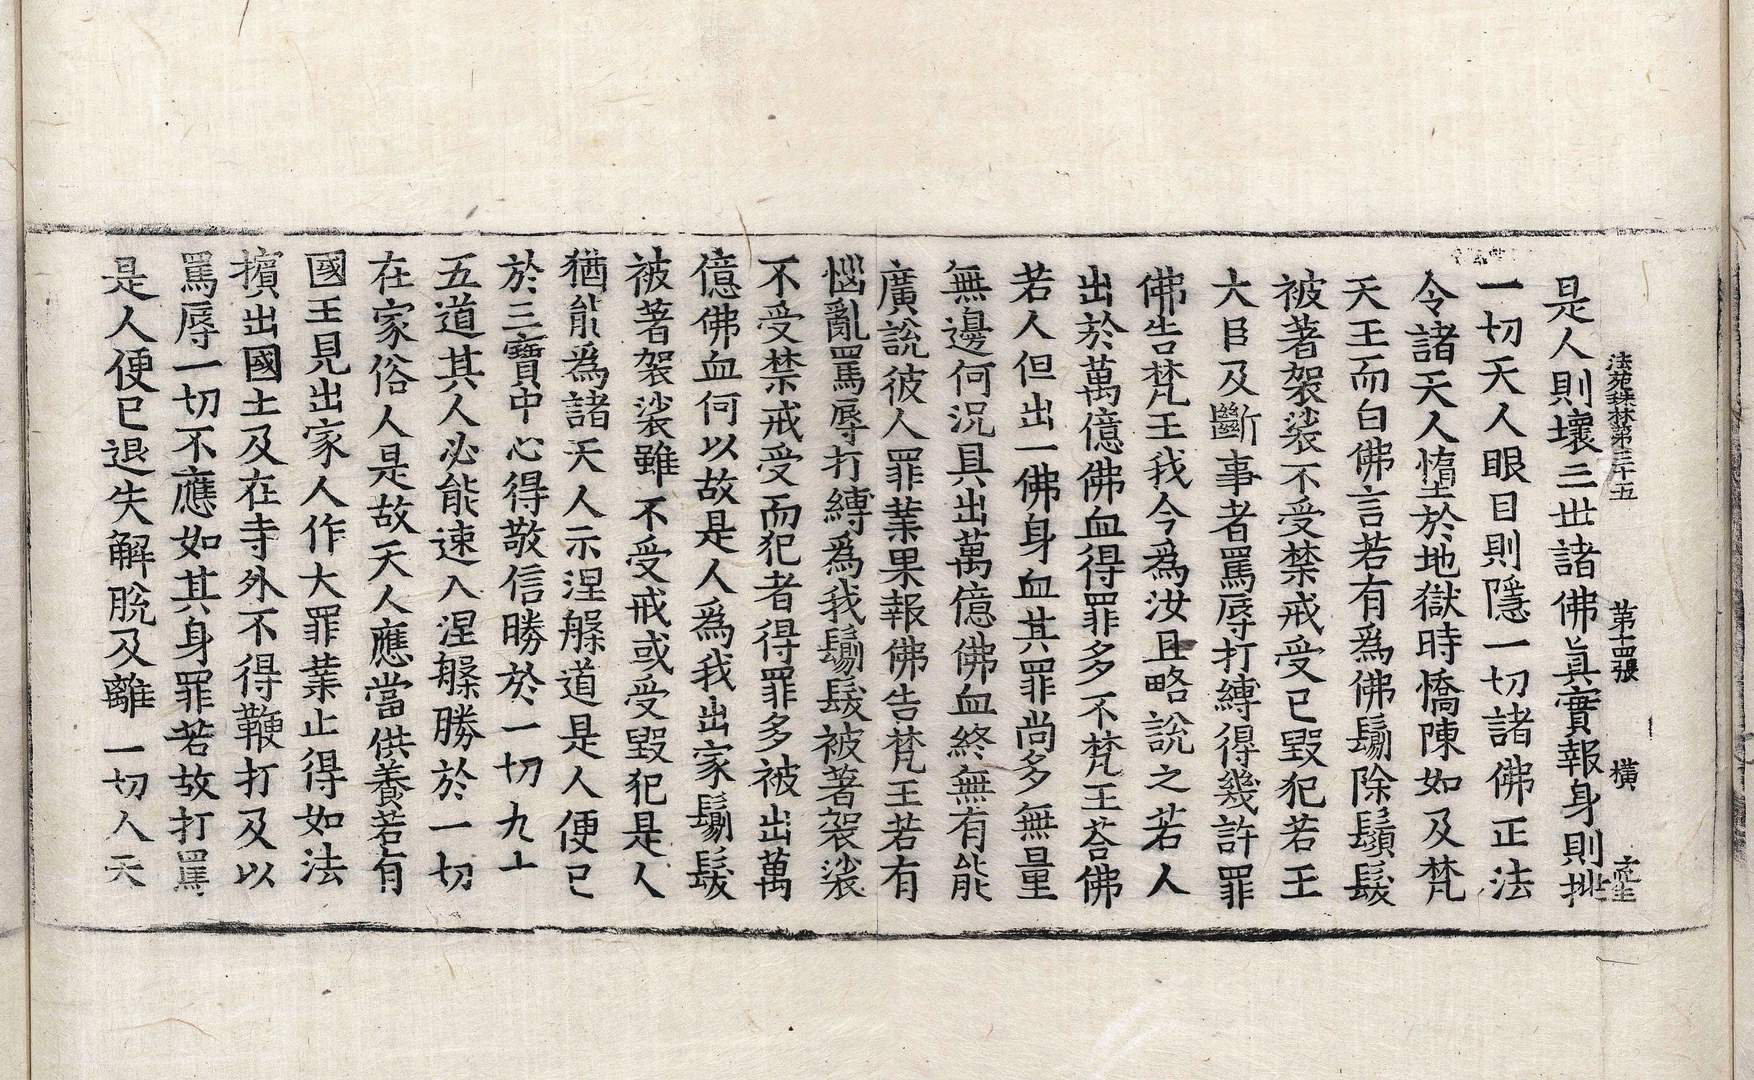 法苑珠林第三十五 第十四張 橫
是人則壞三世諸佛眞實報身則挑
一切天人眼目則隱一切諸佛正法
令諸天人墯於地獄時憍陳如及梵
天王而白佛言若有爲佛鬀除鬚髮
被著袈裟不受禁戒受已毀犯若王
大臣及斷事者罵辱打縛得幾許罪
佛告梵王我今爲汝且略說之若人
出於萬億佛血得罪多不梵王荅佛
若人但出一佛身血其罪尚多無量
無邊何況具出萬億佛血終無有能
廣說彼人罪業果報佛告梵王若有
惱亂罵辱打縛爲我鬀髮被著袈裟
不受禁戒受而犯者得罪多彼出萬
億佛血何以故是人爲我出家鬀髮
被著袈裟雖不受戒或受毀犯是人
猶能爲諸天人示涅槃道是人便已
於三寶中心得敬信勝於一切九十
五道其人必能速入涅槃勝於一切
在家俗人是故天人應當供養若有
國王見出家人作大罪業止得如法
擯出國土及在寺外不得鞭打及以
罵辱一切不應如其身罪若故打罵
是人便已退失解脫及離一切人天